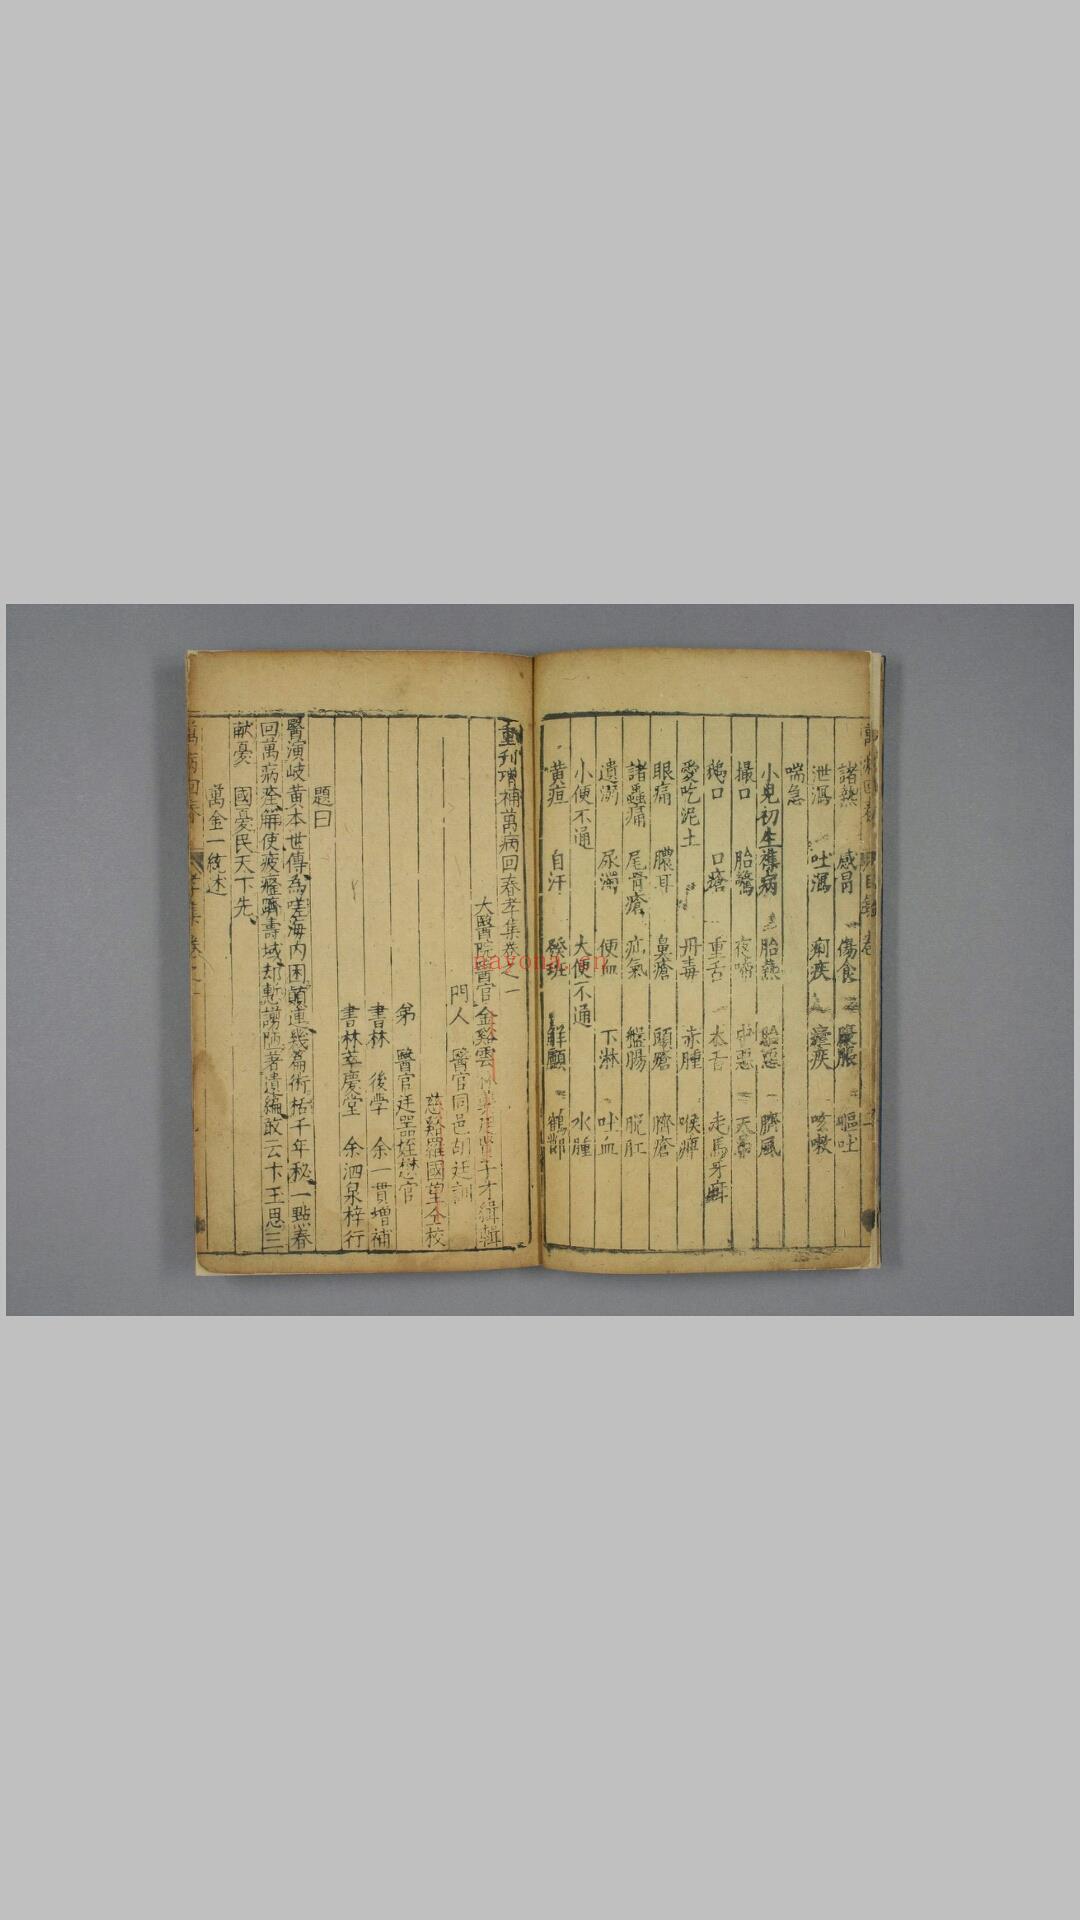 諸熱 感冒 傷食 腹脹 嘔吐
泄瀉 吐瀉 痢疾 瘧疾 咳嗽
喘急
小兒初生雜病 胎熱 胎惡 臍風
撮口 胎驚 夜啼 中惡 天
鵝口 口瘡 重舌 木舌 走馬牙疳
愛吃泥土 丹毒 赤腫 喉痺
眼痛 膿耳 鼻瘡 頭瘡 臍瘡
諸蟲痛 尾骨瘡 疝氣 盤腸 脫肛
遺溺 尿濁 便血 下淋 吐血
小便不通 大便不通 水腫
黃疸 自汗 發斑 解顱 鶴節
重刊增補萬病回春孝集卷之一
大醫院醫官金谿雲林 子才緝輯
門人 醫官同邑胡廷訓
慈谿羅國 仝校
弟 醫官廷器姪懋官
書林 後學 余一貫增補
書林萃慶堂 余泗泉梓行
題曰
醫演岐黃本世傳為嗟海內困顛連幾篇術括千年秘一點春
回萬病痊觧使疲癃躋壽域却慙謭陋著遺編敢云卞玉思三
献憂 國憂民天下先
萬金一統述
萬病回春 孝集卷之一
nayona.cn